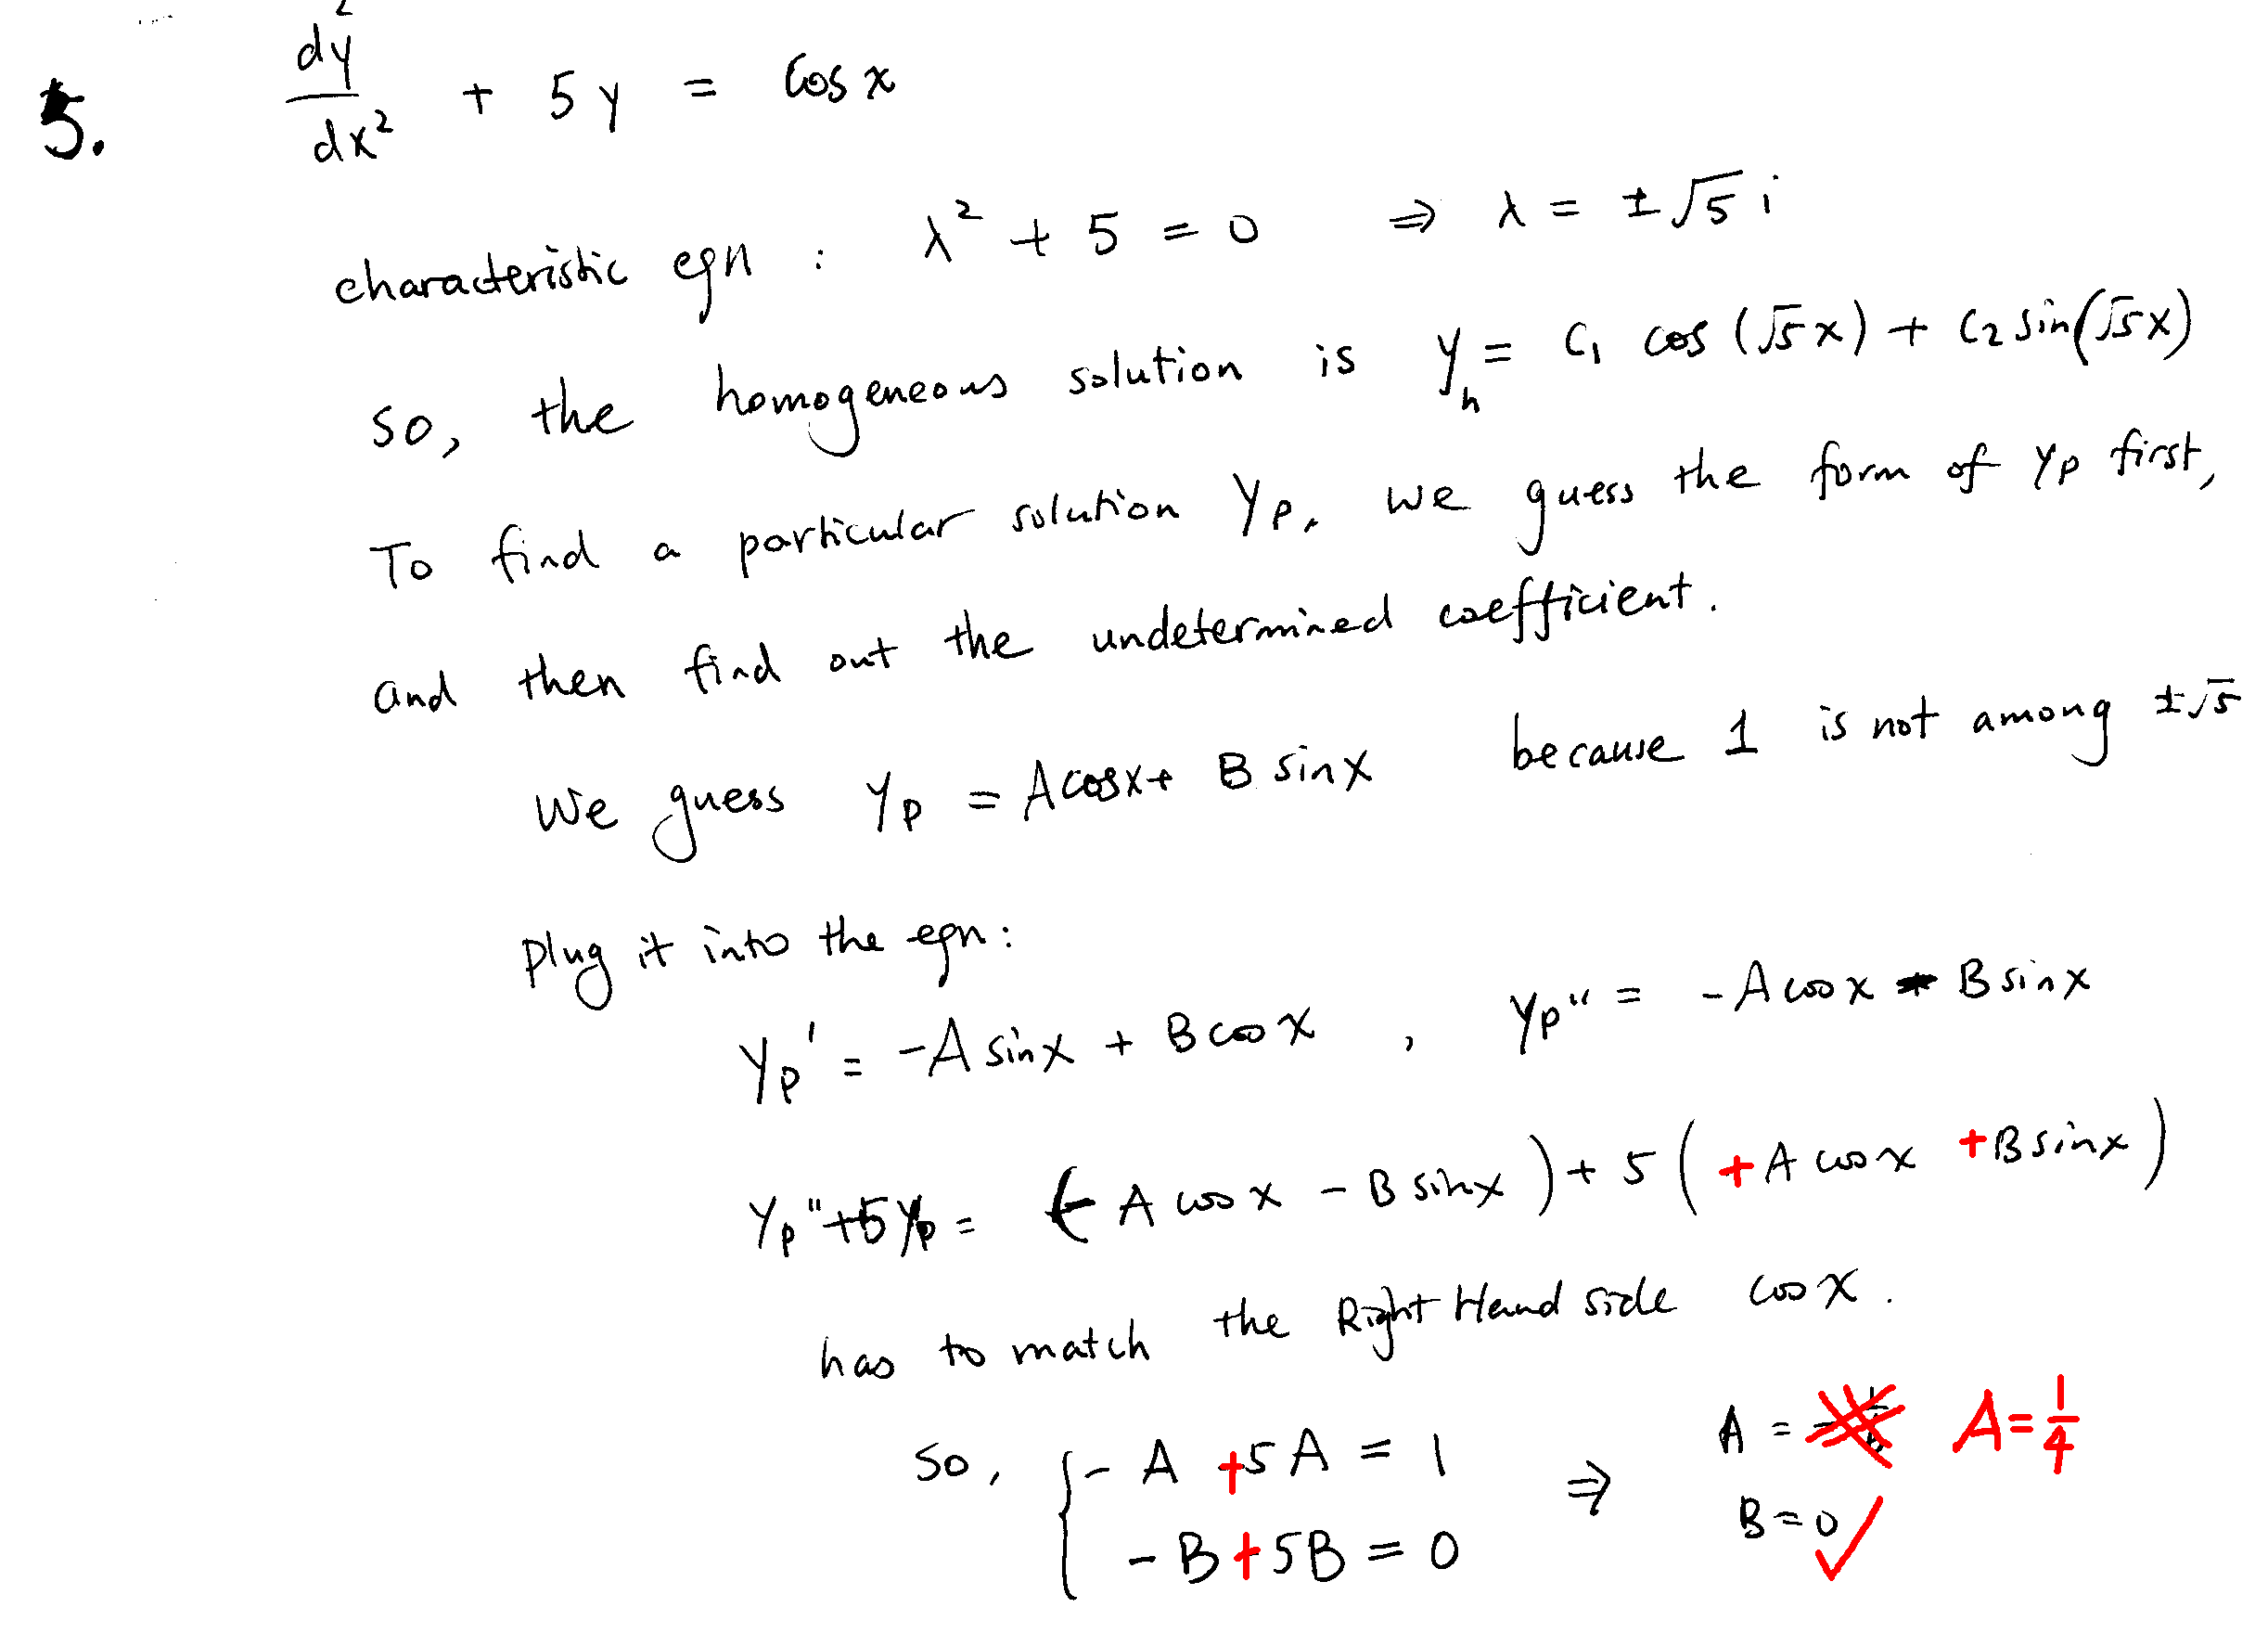 5. d²y/dx² + 5y = cos x
characteristic eqn : λ² + 5 = 0 ⇒ λ = ±√5 i
so, the homogeneous solution is y_h = C₁ cos (√5 x) + C₂ sin(√5 x)
To find a particular solution Yp, we guess the form of Yp first,
and then find out the undetermined coefficient.
We guess Yp = A cosx + B sinx because 1 is not among ±√5
Plug it into the eqn:
Yp' = -A sinx + B cos x , Yp" = -A cos x - B sinx
Yp" + 5Yp = (-A cos x - B sinx) + 5 (+A cos x + B sinx)
has to match the Right Hand side cos x.
So, { -A +5A = 1 ⇒ A = A = 1/4
-B + 5B = 0 B = 0 ✓